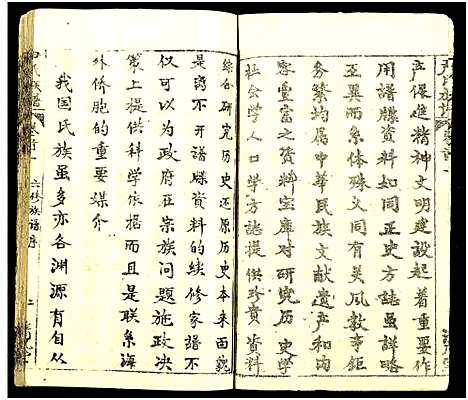 产促進精神文明建設起着重要作
用譜牒資料如同正史方誌虽詳略
至異而条体殊义同有美风敦亭鉅
务繁均属中華民族文献遗产和内
容豊富之資料宝庫对研究历史学
社会学人口学方誌提供珍貴資料
綜合研究历史还原历史本来面貌
是离不开譜牒資料的续修家譜不
仅可以为政府在宗族问题施政决
策上提供科学依据而且是联系海
外侨胞的重要媒介
我国氏族虽多亦各渊源有自从
六修族譜序
二